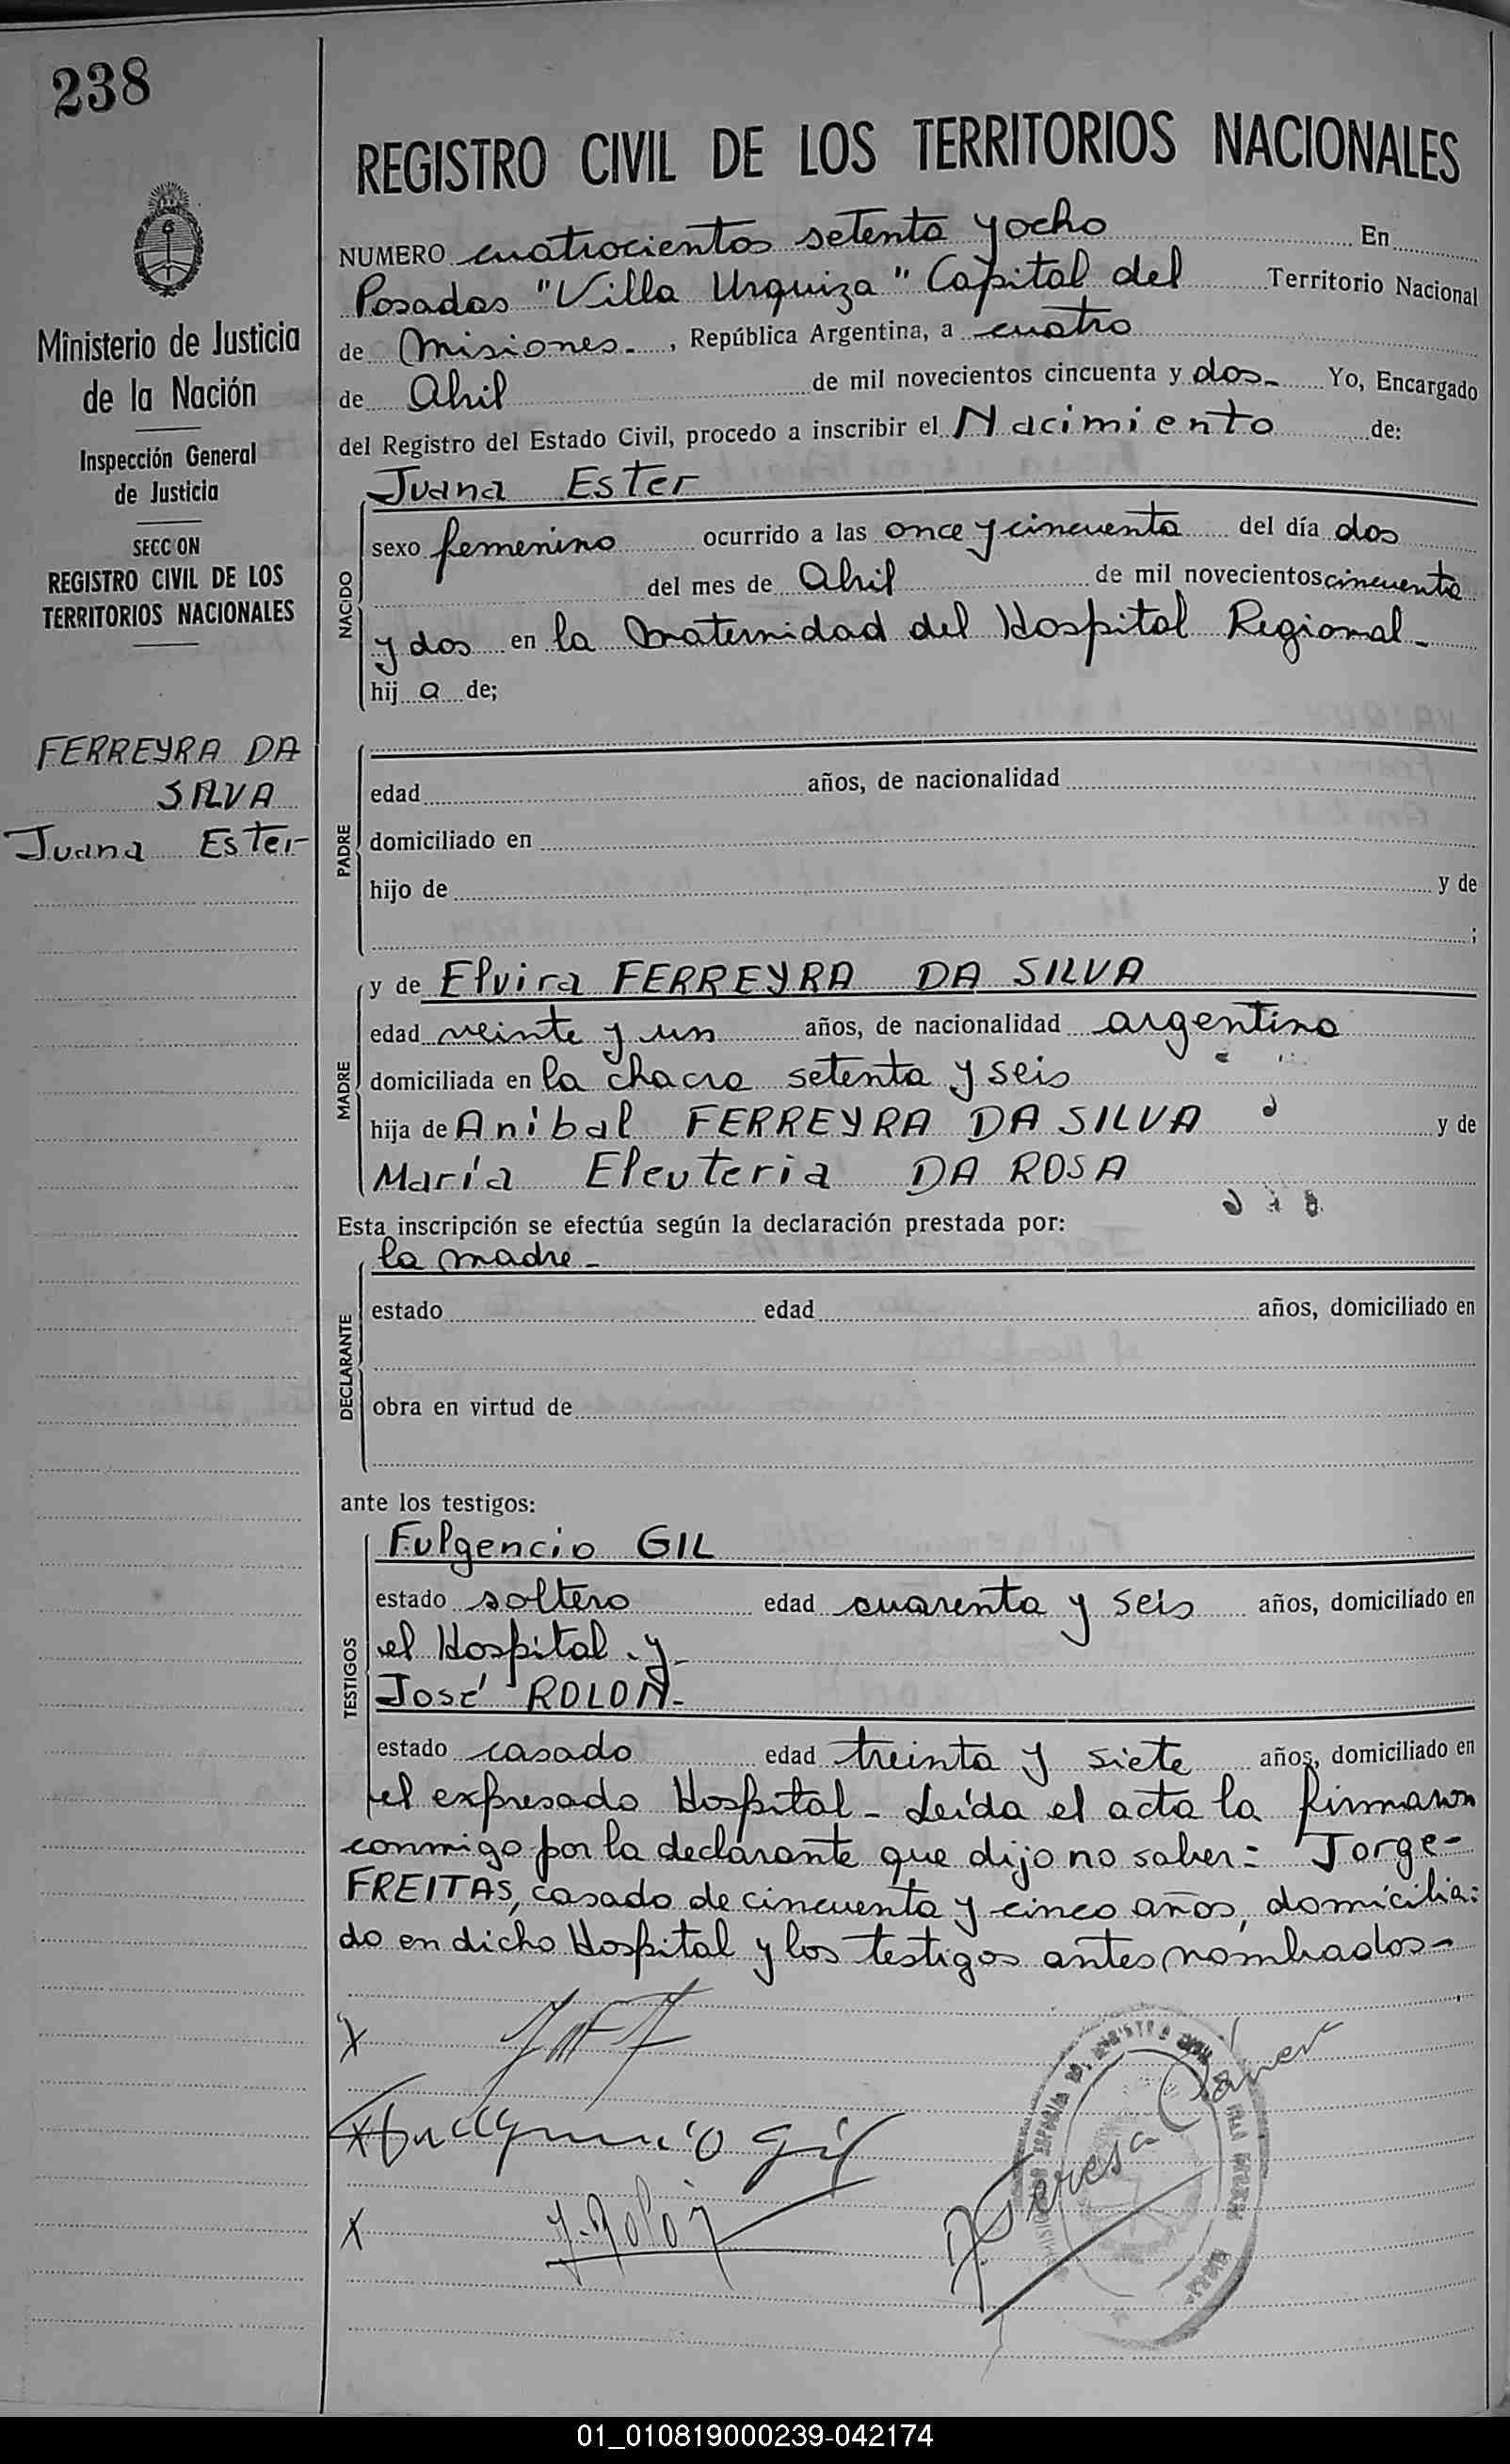 238
REGISTRO CIVIL DE LOS TERRITORIOS NACIONALES
NUMERO cuatrocientos setenta y ocho En
Posadas "Villa Urquiza" Capital del Territorio Nacional
de Misiones.-, República Argentina, a cuatro
de Abril de mil novecientos cincuenta y dos- Yo, Encargado
del Registro del Estado Civil, procedo a inscribir el Nacimiento de:
Juana Ester
NACIDO
sexo femenino ocurrido a las once y cincuenta del día dos
del mes de Abril de mil novecientos cincuenta
y dos en la Maternidad del Hospital Regional-
hij a de;
Ministerio de Justicia
de la Nación
Inspección General
de Justicia
SECCION
REGISTRO CIVIL DE LOS
TERRITORIOS NACIONALES
FERREYRA DA
SILVA
Juana Ester-
PADRE
edad años, de nacionalidad
domiciliado en
hijo de y de
;
MADRE
y de Elvira FERREYRA DA SILVA
edad veinte y un años, de nacionalidad argentina
domiciliada en la chacra setenta y seis
hija de Anibal FERREYRA DA SILVA y de
María Eleuteria DA ROSA
Esta inscripción se efectúa según la declaración prestada por:
la madre-
DECLARANTE
estado edad años, domiciliado en
obra en virtud de
ante los testigos:
TESTIGOS
Fulgencio GIL
estado soltero edad cuarenta y seis años, domiciliado en
el Hospital.y-
José ROLON-
estado casado edad treinta y siete años, domiciliado en
el expresado Hospital- Leída el acta la firmaron
conmigo por la declarante que dijo no saber: Jorge-
FREITAS, casado de cincuenta y cinco años, domicilia:
do en dicho Hospital y los testigos antes nombrados-
X
X Fulgencio Gil
X J. Rolón
Teresa
01_010819000239-042174